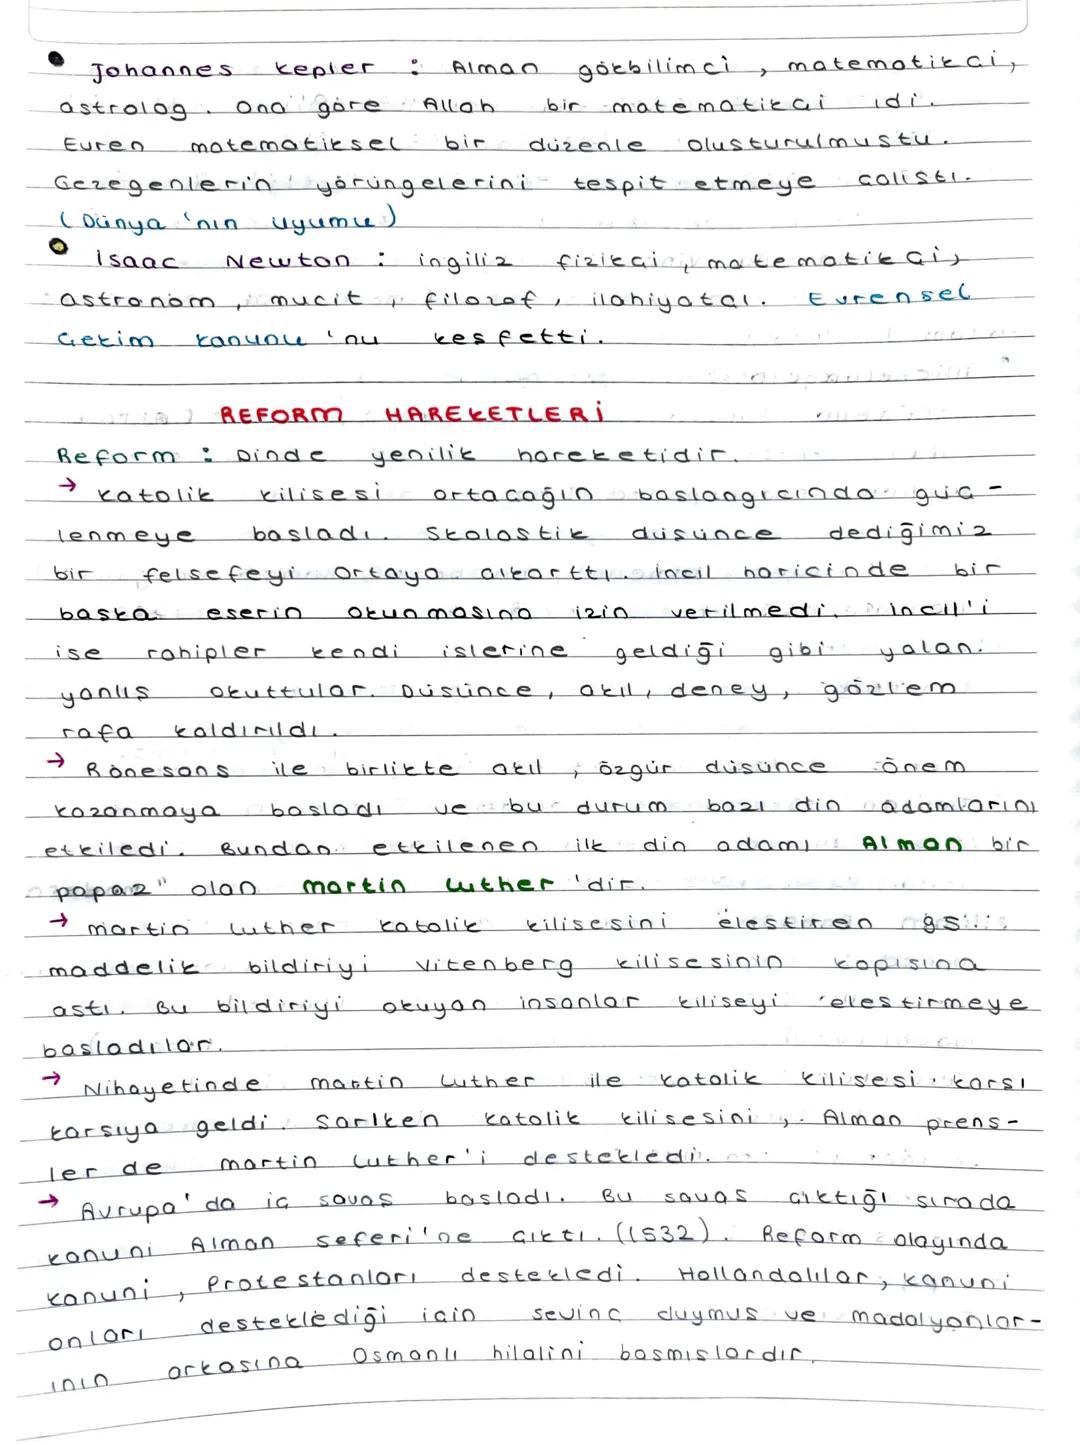 • Johannes Kepler : Alman gökbilimci, matematikçi,
astrolog. Ona göre Allah bir matematikçi idi.
Evren matematiksel bir düzenle oluşturulmuştu.
Gezegenlerin yörüngelerini tespit etmeye çalıştı.
(Dünya'nın uyumu)
• Isaac Newton : ingiliz fizikçi, matematikçi,
astronom, mucit, filozof, ilahiyatçı. Evrensel
Çekim kanunu'nu keşfetti.
REFORM HAREKETLERİ
Reform : Dinde yenilik hareketidir.
→ Katolik kilisesi ortaçağın başlangıcında güç-
lenmeye başladı. Skolastik düşünce dediğimiz
bir felsefeyi ortaya çıkarttı. İncil haricinde bir
başka eserin okunmasına izin verilmedi. İncil'i
ise rahipler kendi işlerine geldiği gibi yalan
yanlış okuttular. Düşünce, akıl, deney, gözlem
rafa kaldırıldı.
→ Rönesans ile birlikte akıl, özgür düşünce önem
kazanmaya başladı ve bu durum bazı din adamlarını
etkiledi. Bundan etkilenen ilk din adamı Alman bir
papaz olan Martin Luther'dir.
→ Martin Luther Katolik kilisesini eleştiren 95
maddelik bildiriyi Vitenberg kilisesinin kapısına
astı. Bu bildiriyi okuyan insanlar kiliseyi eleştirmeye
başladılar.
→ Nihayetinde Martin Luther ile Katolik kilisesi karşı
karşıya geldi. Şarlken Katolik kilisesini, Alman prens-
ler de Martin Luther'i destekledi.
→ Avrupa'da iç savaş başladı. Bu savaş çıktığı sırada
Kanuni Alman seferi'ne çıktı. (1532). Reform olayında
Kanuni, Protestanları destekledi. Hollandalılar, Kanuni
onları desteklediği için sevinç duymuş ve madalyonlar-
ının arkasına Osmanlı hilalini basmışlardır.